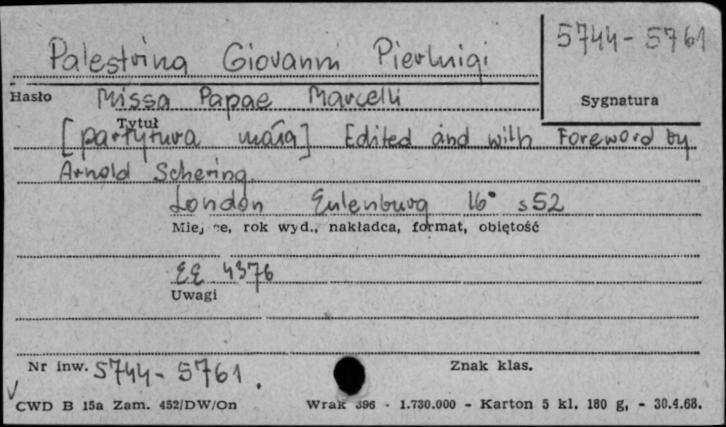 Palestrina Giovanni Pierluigi
5744-5761
Hasło Missa Papae Marcelli
Sygnatura
Tytuł
[partytura mała] Edited and with Foreword by
Arnold Schering.
London Eulenburg 16° s 52
Miejsce, rok wyd., nakładca, format, objętość
EE 4376
Uwagi
Nr inw. 5744-5761.
Znak klas.
CWD B 15a Zam. 452/DW/On Wrak 396 - 1.730.000 - Karton 5 kl. 180 g, - 30.4.68.